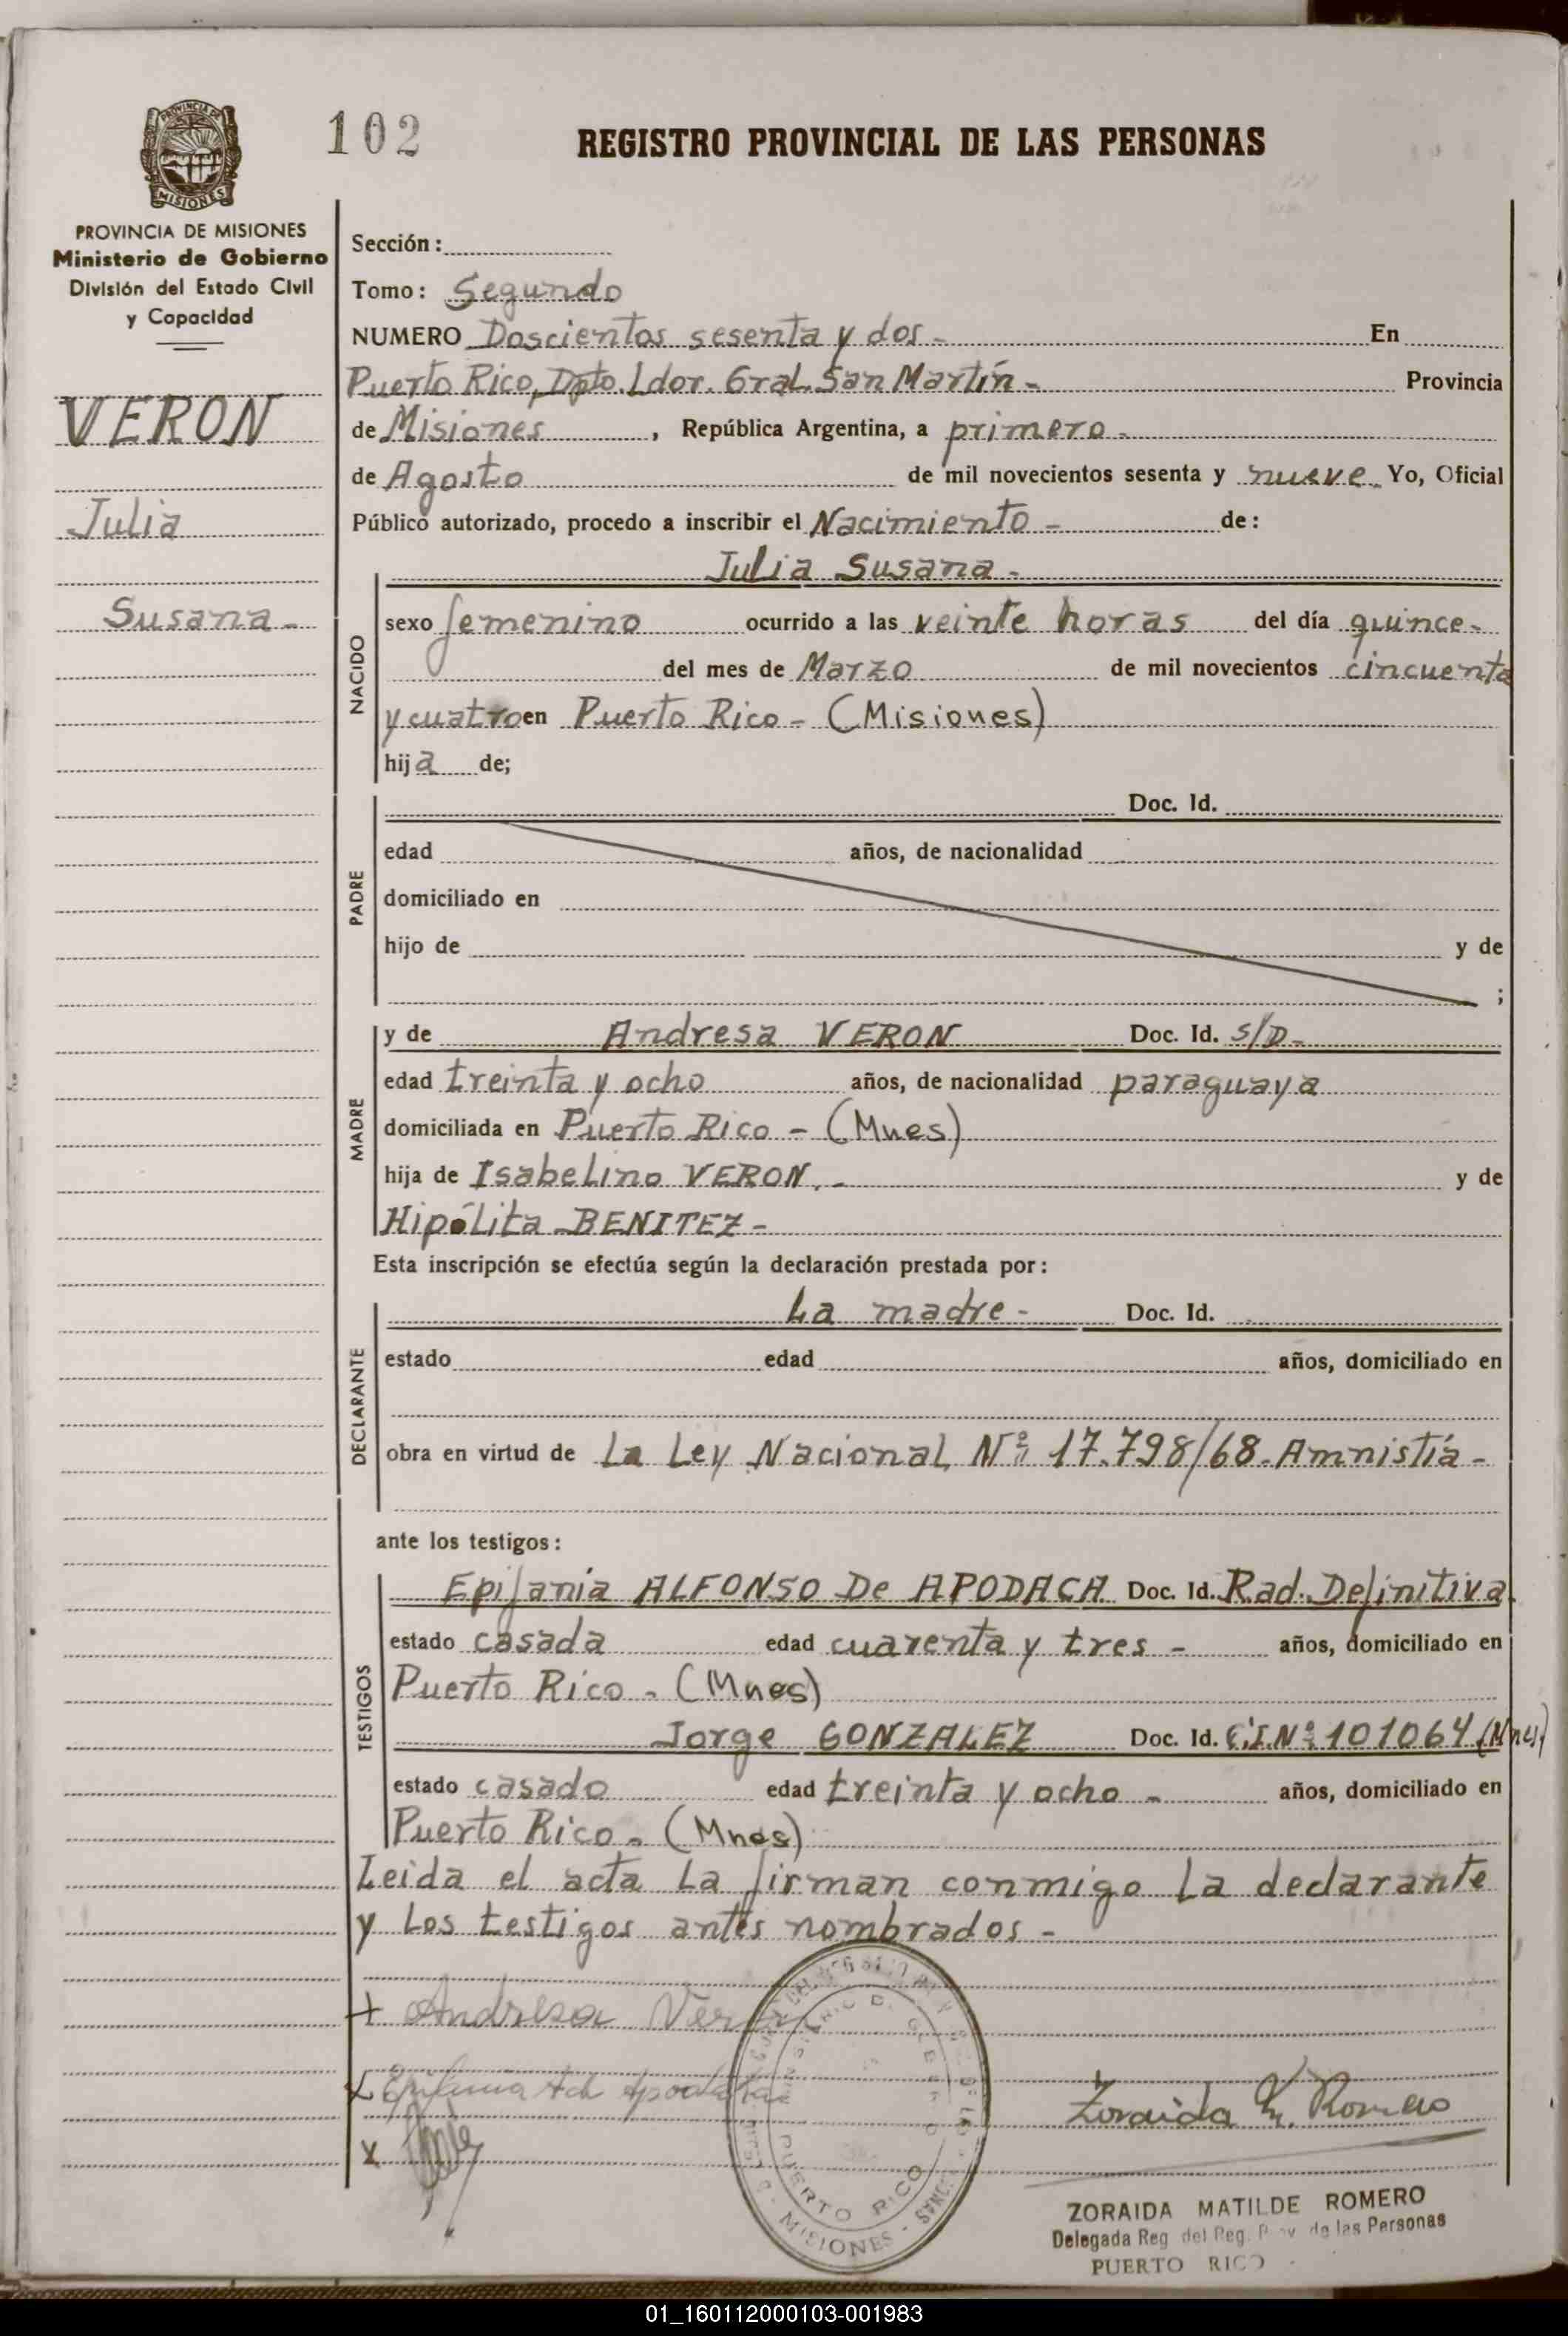 102
REGISTRO PROVINCIAL DE LAS PERSONAS
PROVINCIA DE
MISIONES
PROVINCIA DE MISIONES
Ministerio de Gobierno
División del Estado Civil
y Capacidad
VERON
Julia
Susana -
Sección:
Tomo: Segundo
NUMERO Doscientos sesenta y dos - En
Puerto Rico, Dpto. Ldor. Gral. San Martín - Provincia
de Misiones, República Argentina, a primero -
de Agosto de mil novecientos sesenta y nueve Yo, Oficial
Público autorizado, procedo a inscribir el Nacimiento - de:
Julia Susana -
NACIDO
sexo femenino ocurrido a las veinte horas del día quince -
del mes de Marzo de mil novecientos cincuenta
y cuatro en Puerto Rico - (Misiones)
hija de;
PADRE
Doc. Id.
edad años, de nacionalidad
domiciliado en
hijo de y de
;
MADRE
y de Andresa VERON Doc. Id. S/D -
edad treinta y ocho años, de nacionalidad paraguaya
domiciliada en Puerto Rico - (Mnes)
hija de Isabelino VERON. - y de
Hipólita BENITEZ -
Esta inscripción se efectúa según la declaración prestada por:
DECLARANTE
La madre - Doc. Id.
estado edad años, domiciliado en
obra en virtud de La Ley Nacional Nº 17.798/68 - Amnistía -
ante los testigos:
TESTIGOS
Epifania ALFONSO De APODACA Doc. Id. Rad. Definitiva.
estado casada edad cuarenta y tres - años, domiciliado en
Puerto Rico - (Mnes)
Jorge GONZALEZ Doc. Id. C.I. Nº 101064 (Mnes)
estado casado edad treinta y ocho - años, domiciliado en
Puerto Rico - (Mnes)
Leida el acta La firman conmigo La declarante
y Los testigos antes nombrados -
+ Andresa Veron
x Epifania A de Apodaca
x
PUERTO RICO
MISIONES
Zoraida M. Romero
ZORAIDA MATILDE ROMERO
Delegada Reg. del Reg. Prov. de las Personas
PUERTO RICO
01_160112000103-001983